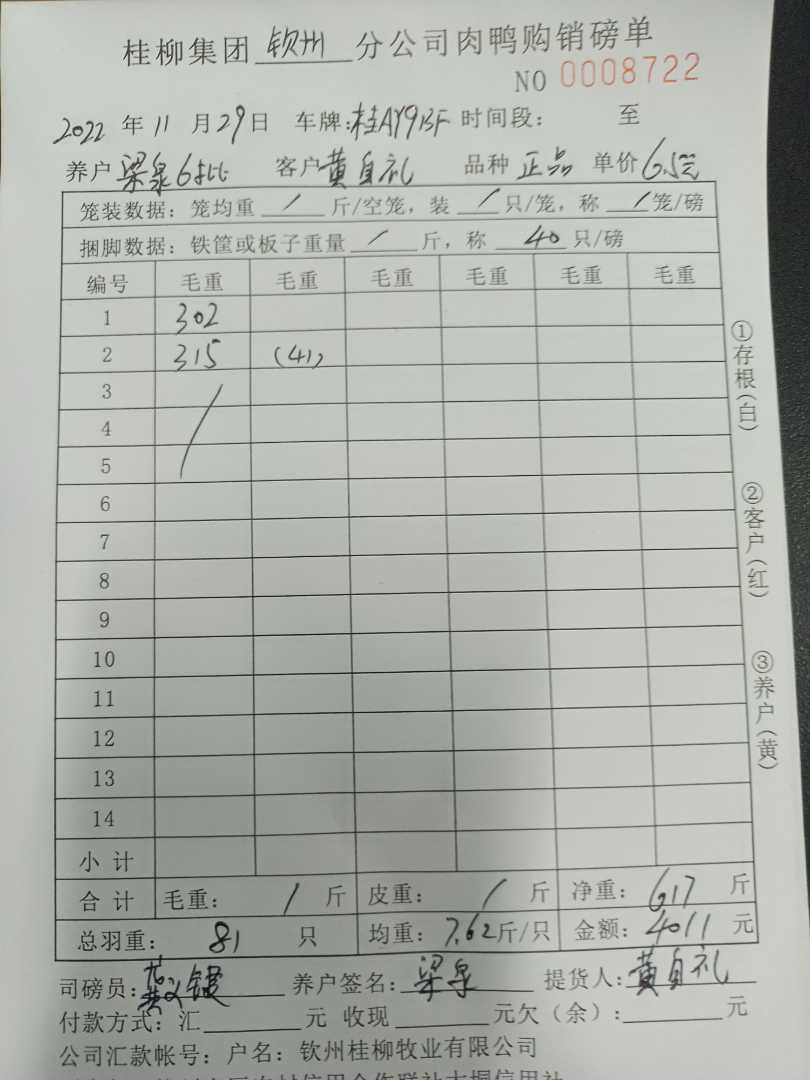 桂柳集团 钦州 分公司肉鸭购销磅单
NO 0008722
2022 年 11 月 29 日 车牌:桂AY9BF 时间段: 至
养户 梁泉 客户 黄自礼 品种 正品 单价 6.5元
笼装数据: 笼均重 / 斤/空笼, 装 / 只/笼, 称 / 笼/磅
捆脚数据: 铁筐或板子重量 / 斤, 称 40 只/磅
编号 毛重 毛重 毛重 毛重 毛重 毛重
1 302
2 315 (41)
3
4
5
6
7
8
9
10
11
12
13
14
小 计
合 计 毛重: / 斤 皮重: / 斤 净重: 617 斤
总羽重: 81 只 均重: 7.62 斤/只 金额: 4011 元
司磅员: 养户签名: 梁泉 提货人: 黄自礼
付款方式: 汇 元 收现 元欠(余): 元
公司汇款帐号: 户名: 钦州桂柳牧业有限公司
①存根(白)
②客户(红)
③养户(黄)